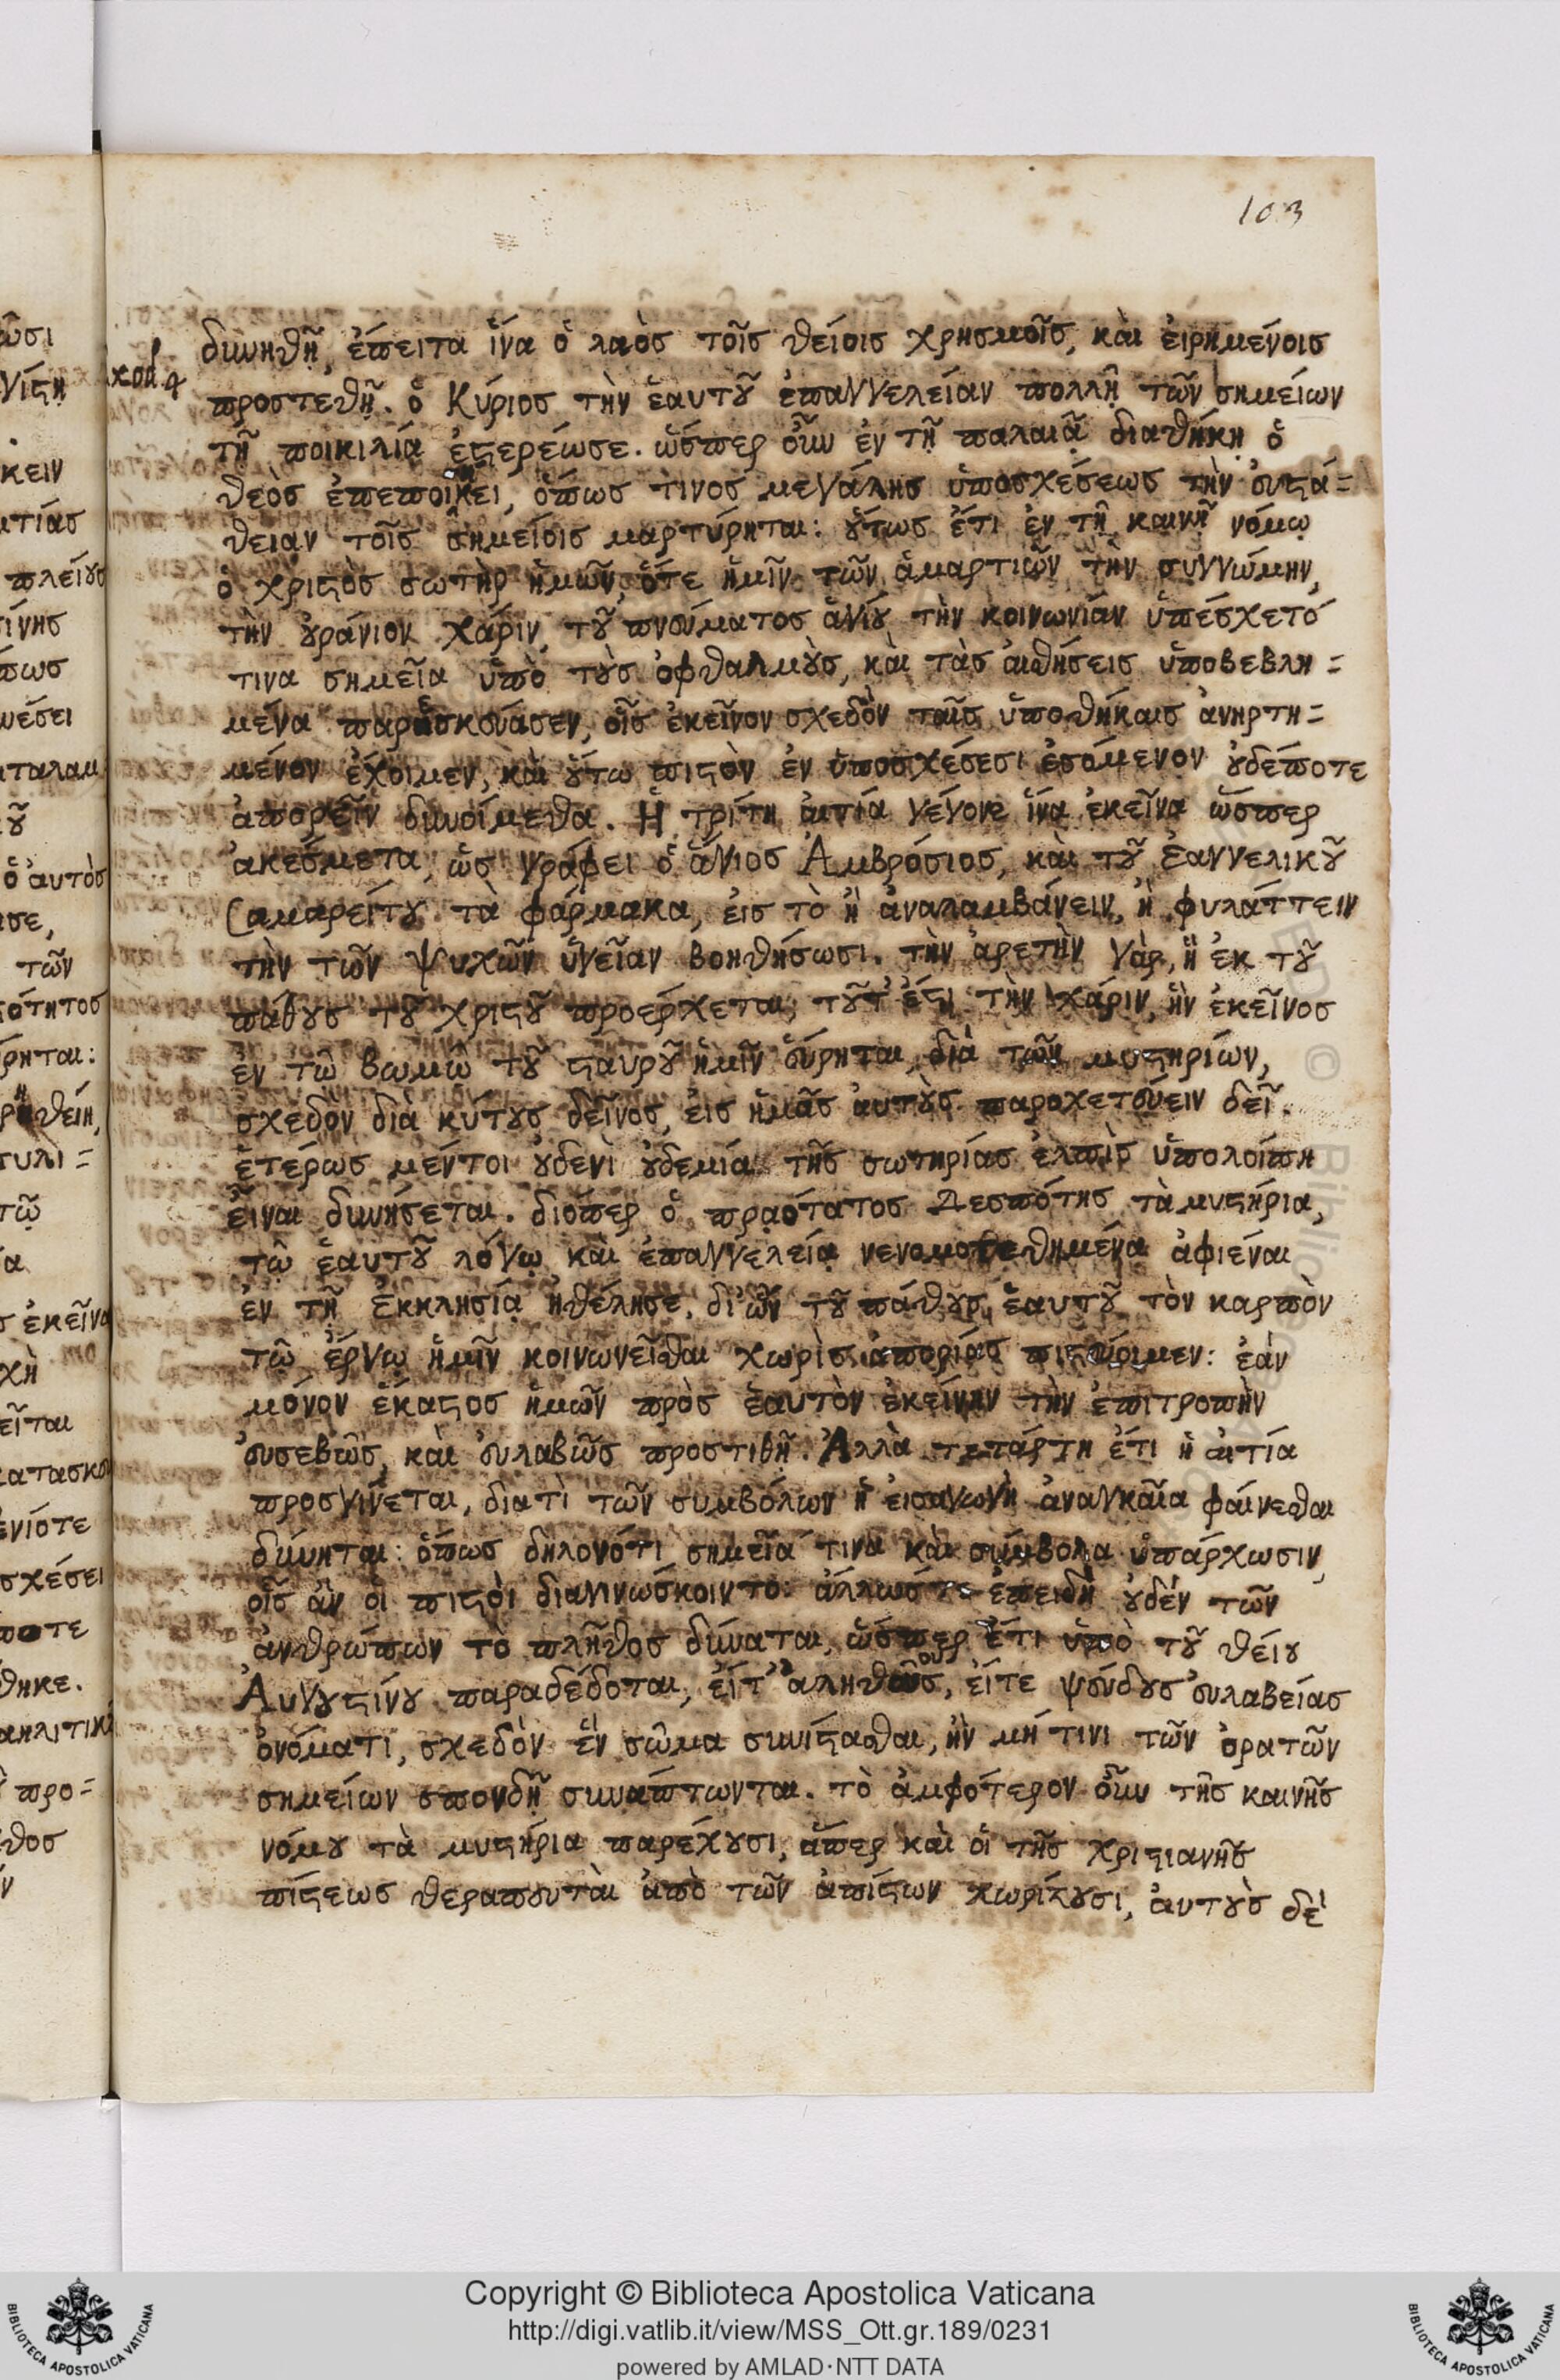 103
δυνηθῇ, ἔπειτα ἵνα ὁ λαὸς τοῖς θείοις χρησμοῖς, καὶ εἰρημένοις
προστεθῇ. ὁ Κύριος τὴν ἑαυτοῦ ἐπαγγελείαν πολλῇ τῶν σημείων
τῇ ποικιλίᾳ ἐστερέωσε. ὥσπερ οὖν ἐν τῇ παλαιᾷ διαθήκῃ ὁ
θεὸς ἐπεποίηκει, ὅπως τινος μεγάλης ὑποσχέσεως τὴν ἐυστά=
θειαν τοῖς σημείοις μαρτύρηται: οὕτως ἔτι ἐν τῇ καινῇ νόμῳ
ὁ χριστὸς σωτὴρ ἡμῶν, ὅτε ἡμῖν τῶν ἁμαρτιῶν τὴν συγγνώμην,
τὴν οὐράνιον χάριν, τοῦ πνεύματος ἁγίου τὴν κοινωνίαν ὑπέσχετό
τινα σημεῖα ὑπὸ τοὺς ὀφθαλμοὺς, καὶ τὰς αἰσθήσεις ὑποβεβλη=
μένα παρασκεύασεν, οἷς ἐκεῖνον σχεδὸν ταῖς ὑποθήκαις ἀνηρτη=
μένον ἔχοιμεν, καὶ οὕτω πιστὸν ἐν ὑποσχέσεσι ἐσόμενον οὐδέποτε
ἀπορεῖν δυνοίμεθα. Ἡ τρίτη αἰτία γέγονε ἵνα ἐκεῖνα ὥσπερ
ἀκέσμετα, ὡς γράφει ὁ ἅγιος Ἀμβρόσιος, καὶ τοῦ Ἐαγγελικοῦ
Σαμαρείτου τὰ φάρμακα, εἰς τὸ ἢ ἀναλαμβάνειν, ἢ φυλάττειν
τὴν τῶν ψυχῶν ὑγεῖαν βοηθήσωσι. τὴν ἀρετὴν γὰρ, ἣ ἐκ τοῦ
πάθους τοῦ χριστοῦ προέρχεται, τοῦτ' ἔστι τὴν χάριν, ἣν ἐκεῖνος
ἐν τῷ βωμῷ τοῦ σταυροῦ ἡμῖν εὕρηται, διὰ τῶν μυστηρίων,
σχεδὸν διὰ κύτους δεῖνος, εἰς ἡμᾶς αὐτοὺς παροχετεύειν δεῖ.
ἑτέρως μέντοι οὐδενὶ οὐδεμία τῆς σωτηρίας ἐλπὶς ὑπολοίπη
εἶναι δυνήσεται. διόπερ ὁ πραότατος Δεσπότης τὰ μυστήρια,
τῷ ἑαυτοῦ λόγῳ καὶ ἐπαγγελείᾳ νενομοθεθημένα ἀφιέναι
ἐν τῇ Ἐκκλησίᾳ ἠθέλησε, δι' ὧν τοῦ πάθους ἑαυτοῦ τὸν καρπὸν
τῷ ἔργῳ ἡμῖν κοινωνεῖσθαι χωρὶς ἀπορίας πιστεύοιμεν: ἐάν
μόνον ἕκαστος ἡμῶν πρὸς ἑαυτὸν ἐκείνην τὴν ἐπιτροπὴν
ἐυσεβῶς, καὶ ἐυλαβῶς προστιθῇ. Ἀλλὰ τετάρτη ἔτι ἡ αἰτία
προσγίνεται, διατὶ τῶν συμβόλων ἡ εἰσαγωγὴ ἀναγκαῖα φαίνεσθαι
δύνηται: ὅπως δηλονότι σημεῖά τινα καὶ σύμβολα ὑπάρχωσιν,
οἷς ἂν οἱ πιστοὶ διαγινώσκοιντο: ἄλλωστε ἐπειδὴ οὐδέν τῶν
ἀνθρώπων τὸ πλῆθος δύναται, ὥσπερ ἔτι ὑπὸ τοῦ θείου
Αὐγουστίνου παραδέδοται, εἴτ' ἀληθοῦς, εἴτε ψεύδους ἐυλαβείας
ὀνόματι, σχεδὸν ἓν σῶμα συνίστασθαι, ἢν μή τινι τῶν ὁρατῶν
σημείων σπονδῇ συνάπτωνται. τὸ ἀμφότερον οὖν τῆς καινῆς
νόμου τὰ μυστήρια παρέχουσι, ἅπερ καὶ οἱ τῆς χριστιανῆς
πίστεως θεραπευταὶ ἀπὸ τῶν ἀπίστων χωρίζουσι, αὐτοὺς δὲ
Copyright © Biblioteca Apostolica Vaticana
http://digi.vatlib.it/view/MSS_Ott.gr.189/0231
powered by AMLAD·NTT DATA
BIBLIOTECA APOSTOLICA VATICANA
BIBLIOTECA APOSTOLICA VATICANA